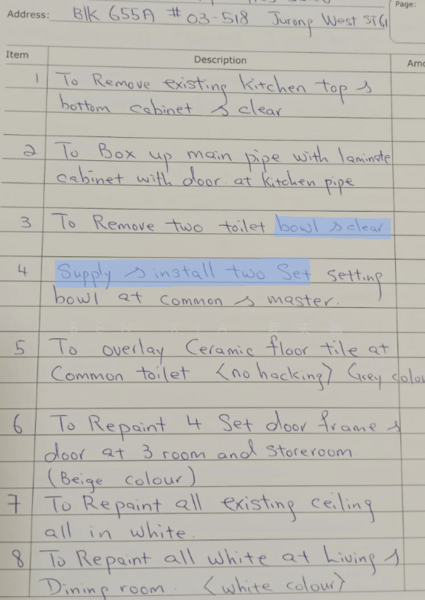 Page:
Address: Blk 655A #03-518 Jurong West ST61
Item Description Amo
1 To Remove existing kitchen top &
bottom cabinet & clear
2 To Box up main pipe with laminate
cabinet with door at kitchen pipe
3 To Remove two toilet bowl & clear
4 Supply & install two Set setting
bowl at common & master.
5 To overlay Ceramic floor tile at
Common toilet <no hacking> Grey colou
6 To Repaint 4 Set door frame &
door at 3 room and storeroom
(Beige colour)
7 To Repaint all existing ceiling
all in white.
8 To Repaint all white at Living &
Dining room. <white colour>